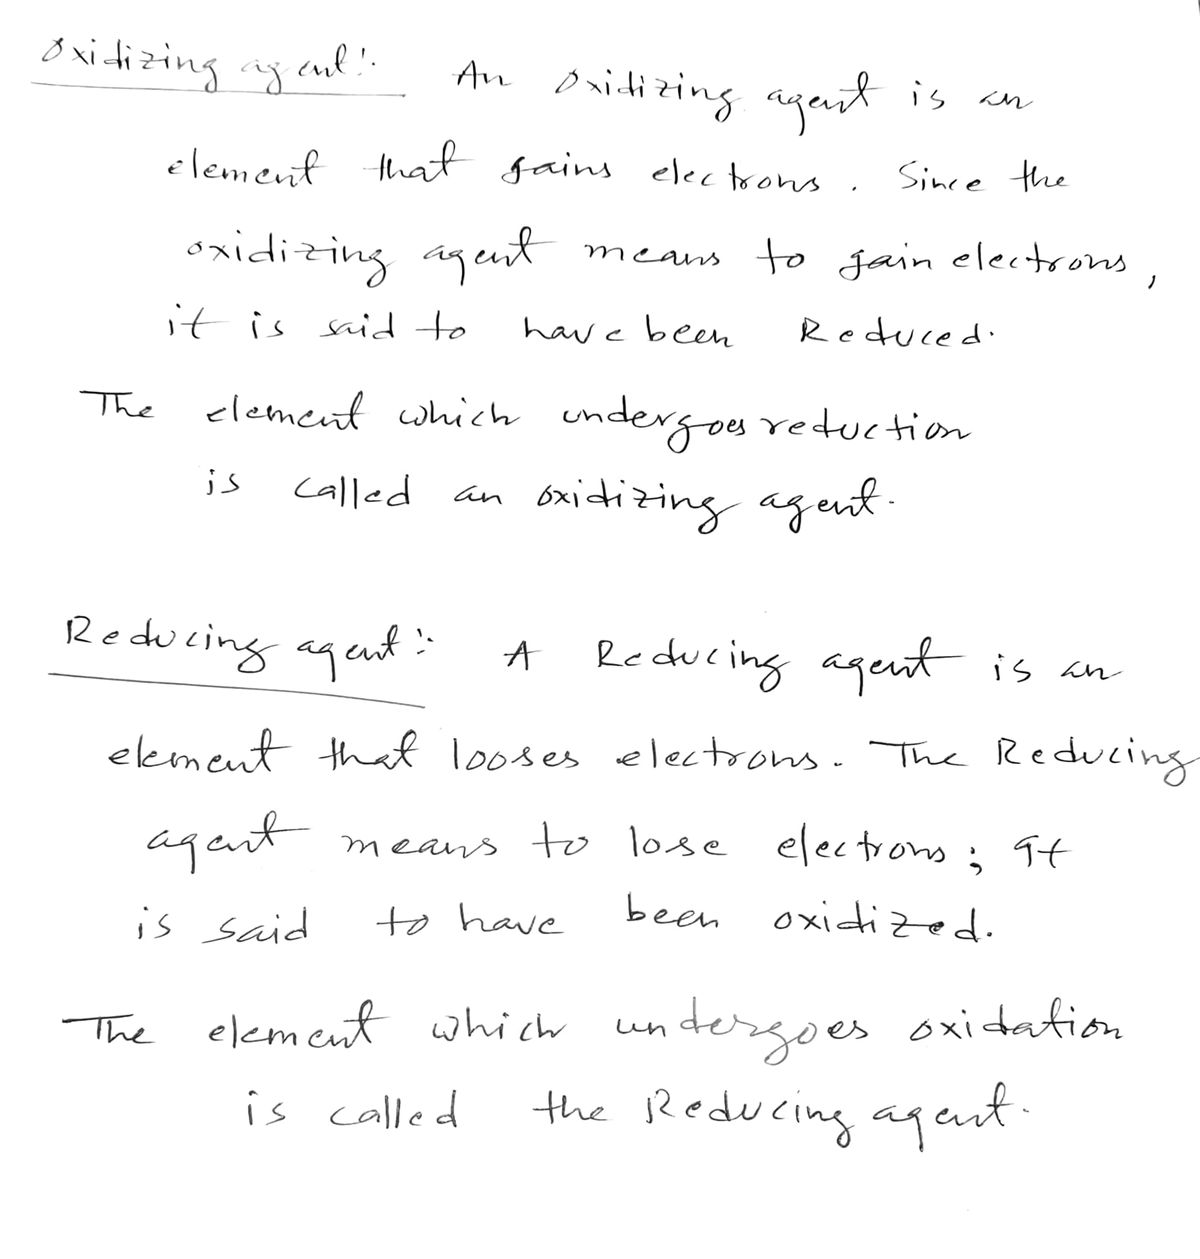 Oxidizing agent:- An oxidizing agent is an
element that gains electrons. Since the
oxidizing agent means to gain electrons,
it is said to have been Reduced.
The element which undergoes reduction
is called an oxidizing agent.
Reducing agent:- A Reducing agent is an
element that looses electrons. The Reducing
agent means to lose electrons; It
is said to have been oxidized.
The element which undergoes oxidation
is called the Reducing agent.